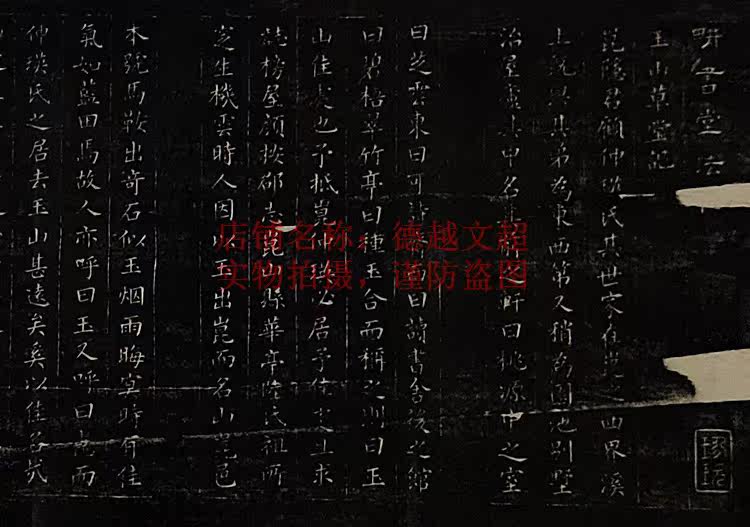 晴香堂法
玉山草堂記
崑隱君顧仲瑛氏其世家在崑之四界溪
上既與其弟為東西第又稍為園池別墅
治屋廬其中名其前之軒曰桃源中之室
曰芝雲東曰可詩齋西曰讀書舍後之館
曰碧梧翠竹亭曰種玉合而稱之則曰玉
山佳處也予抵崑仲瑛必居予佳處且求
誌榜屋顏按郡志崑山縣華亭陸氏祖所
之生機雲時人因以玉出崑而名山崑邑
本號馬鞍出奇石似玉烟雨晦冥時有佳
氣如藍田焉故人亦呼曰玉又呼曰崑而
仲瑛氏之居去玉山甚遠矣奚以佳名哉
店铺名称，德越文超
实物拍摄，谨防盗图